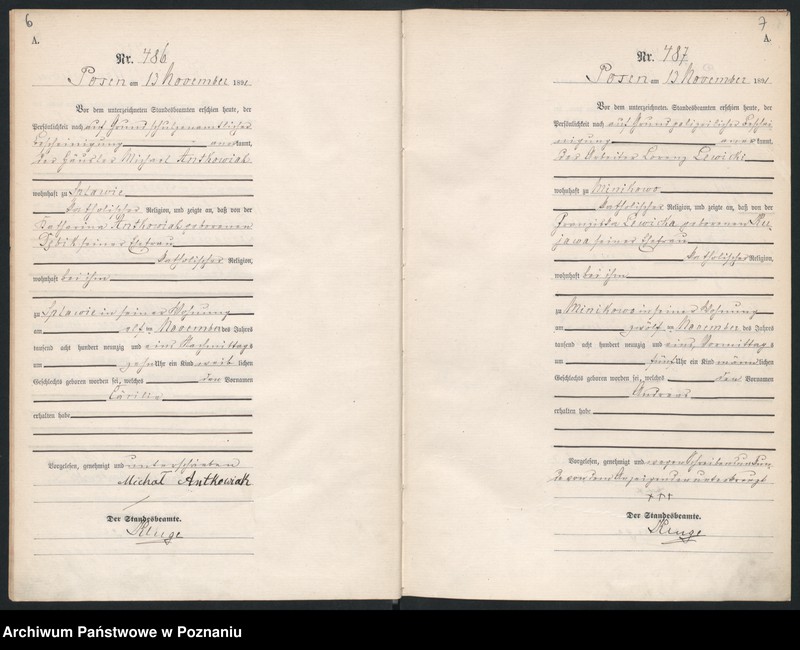 6
A.
Nr. 486
Posen am 13 November 1891
Vor dem unterzeichneten Standesbeamten erschien heute, der
Persönlichkeit nach auf Grund schulzenamtlicher
Bescheinigung anerkannt,
der Häusler Michael Antkowiak
wohnhaft zu Splawie
katholischer Religion, und zeigte an, daß von der
Katharina Antkowiak geborenen
seiner Ehefrau
katholischer Religion,
wohnhaft bei ihm
zu Splawie in seiner Wohnung
am elf ten November des Jahres
tausend acht hundert neunzig und eins Nachmittags
um zehn Uhr ein Kind weib lichen
Geschlechts geboren worden sei, welches den Vornamen
Cäcilie
erhalten habe
Vorgelesen, genehmigt und unterschrieben
Michał Antkowiak
Der Standesbeamte.
Kruge
7
A.
Nr. 487
Posen am 13 November 1891
Vor dem unterzeichneten Standesbeamten erschien heute, der
Persönlichkeit nach auf Grund polizeilicher Beschei-
nigung anerkannt,
der Arbeiter Lorenz Lewicki
wohnhaft zu Minikowo
katholischer Religion, und zeigte an, daß von der
Franziska Lewicka geborenen Ku-
jawa seiner Ehefrau
katholischer Religion,
wohnhaft bei ihm
zu Minikowo in seiner Wohnung
am zwölf ten November des Jahres
tausend acht hundert neunzig und eins, Vormittags
um fünf Uhr ein Kind männ lichen
Geschlechts geboren worden sei, welches den Vornamen
Andreas
erhalten habe
Vorgelesen, genehmigt und wegen Schreibensunkun-
de von dem Anzeigenden unterkreuzt
+++
Der Standesbeamte.
Kruge
Archiwum Państwowe w Poznaniu